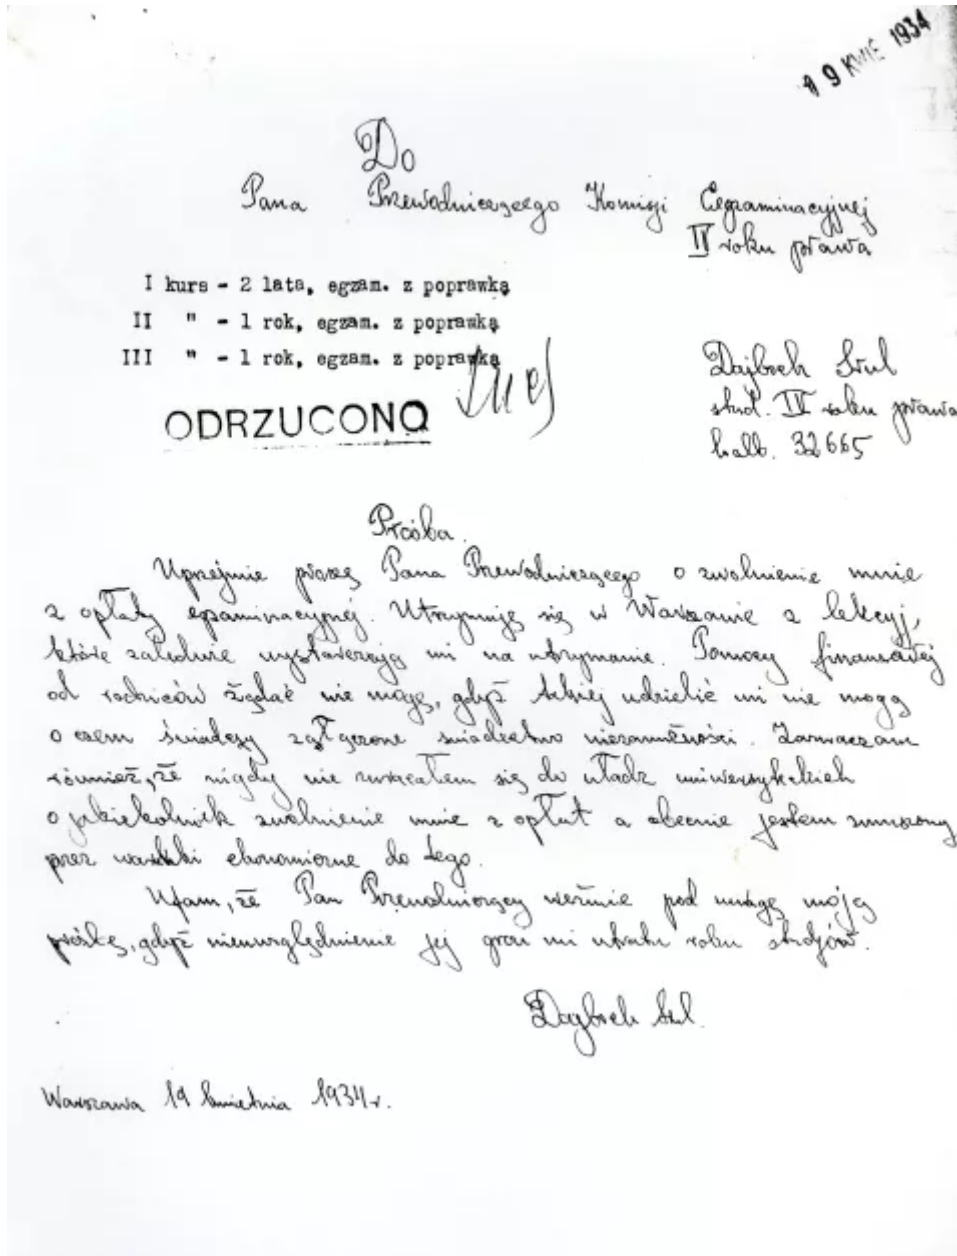 19 KWIE 1934
Do
Pana Przewodniczącego Komisji Egzaminacyjnej
IV roku prawa
I kurs - 2 lata, egzam. z poprawką
II " - 1 rok, egzam. z poprawką
III " - 1 rok, egzam. z poprawką
ODRZUCONO
Dajboch Srul
stud. IV roku prawa
leg. 32665
Prośba.
Uprzejmie proszę Pana Przewodniczącego o zwolnienie mnie
z opłaty egzaminacyjnej. Utrzymuję się w Warszawie z lekcyj,
które zaledwie wystarczają mi na utrzymanie. Pomocy finansowej
od rodziców żądać nie mogę, gdyż takiej udzielić mi nie mogą
o czem świadczy załączone świadectwo niezamożności. Zaznaczam
również, że nigdy nie zwracałem się do władz uniwersyteckich
o jakiekolwiek zwolnienie mnie z opłat a obecnie jestem zmuszony
przez warunki ekonomiczne do tego.
Ufam, że Pan Przewodniczący weźmie pod uwagę moją
prośbę, gdyż nieuwzględnienie jej grozi mi utratą roku studjów.
Dajboch Srul.
Warszawa 19 kwietnia 1934 r.